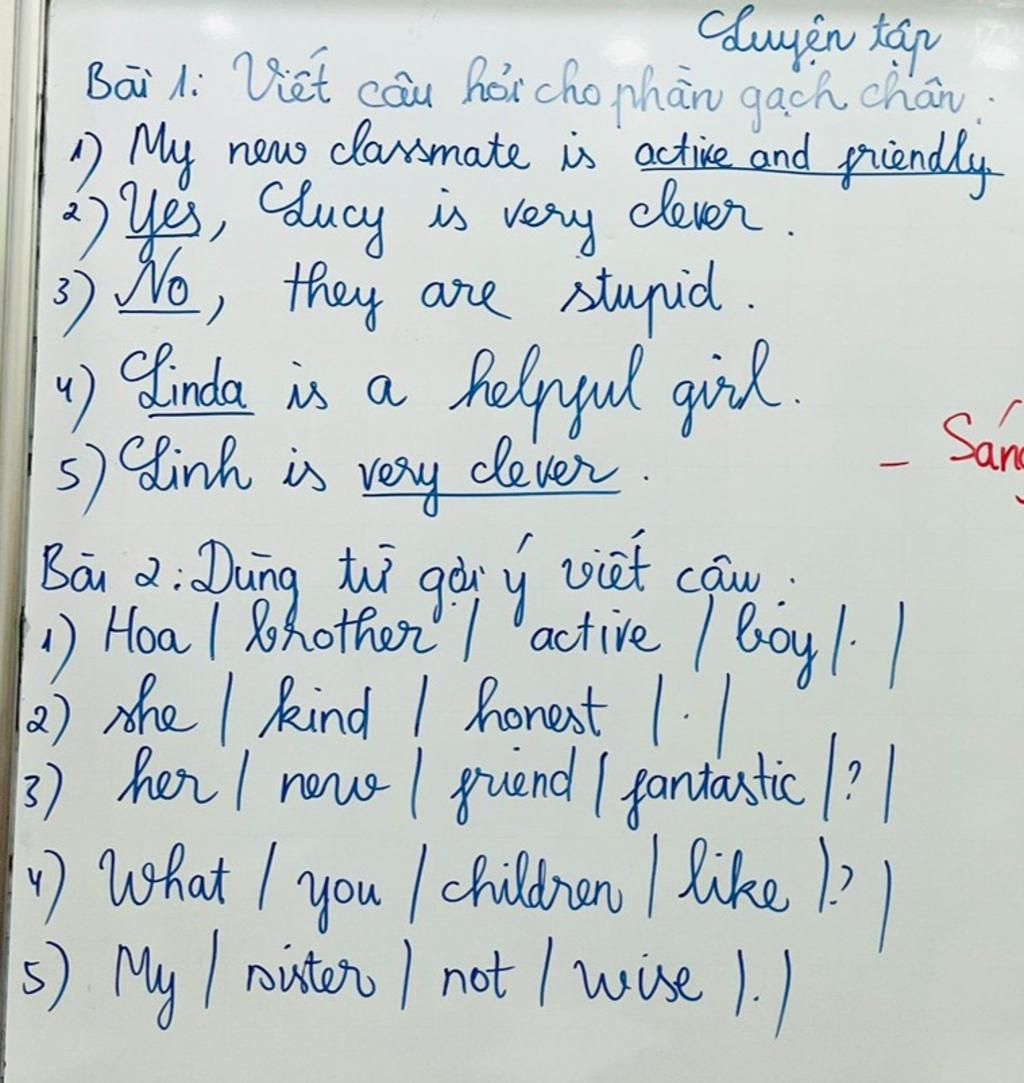 Luyện tập
Bài 1: Viết câu hỏi cho phần gạch chân:
1) My new classmate is active and friendly.
2) Yes, Lucy is very clever.
3) No, they are stupid.
4) Linda is a helpful girl.
5) Linh is very clever.
- Sáng
Bài 2: Dùng từ gợi ý viết câu.
1) Hoa / brother / active / boy / . /
2) she / kind / honest / . /
3) her / new / friend / fantastic / ? /
4) What / you / children / like / ? /
5) My / sister / not / wise / . /